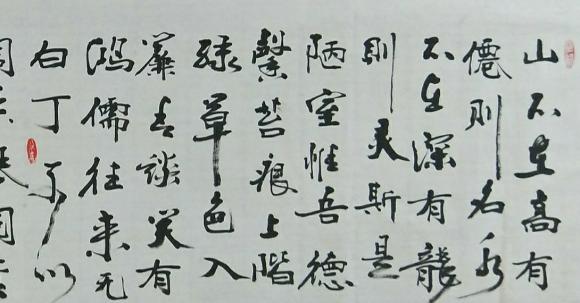 山不在高有
僊則名水
不在深有龍
則灵斯是
陋室惟吾德
馨苔痕上階
绿草色入
簾青談笑有
鴻儒往来无
白丁可以